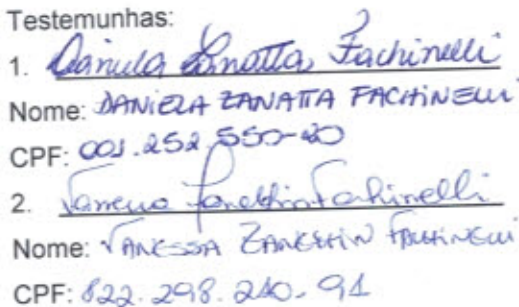 Testemunhas:
1. Daniela Zanatta Fachinelli
Nome: DANIELA ZANATTA FACHINELLI
CPF: 001.252.550-20
2. Vanessa Zanettin Fachinelli
Nome: VANESSA ZANETTIN FACHINELLI
CPF: 822.298.240-91